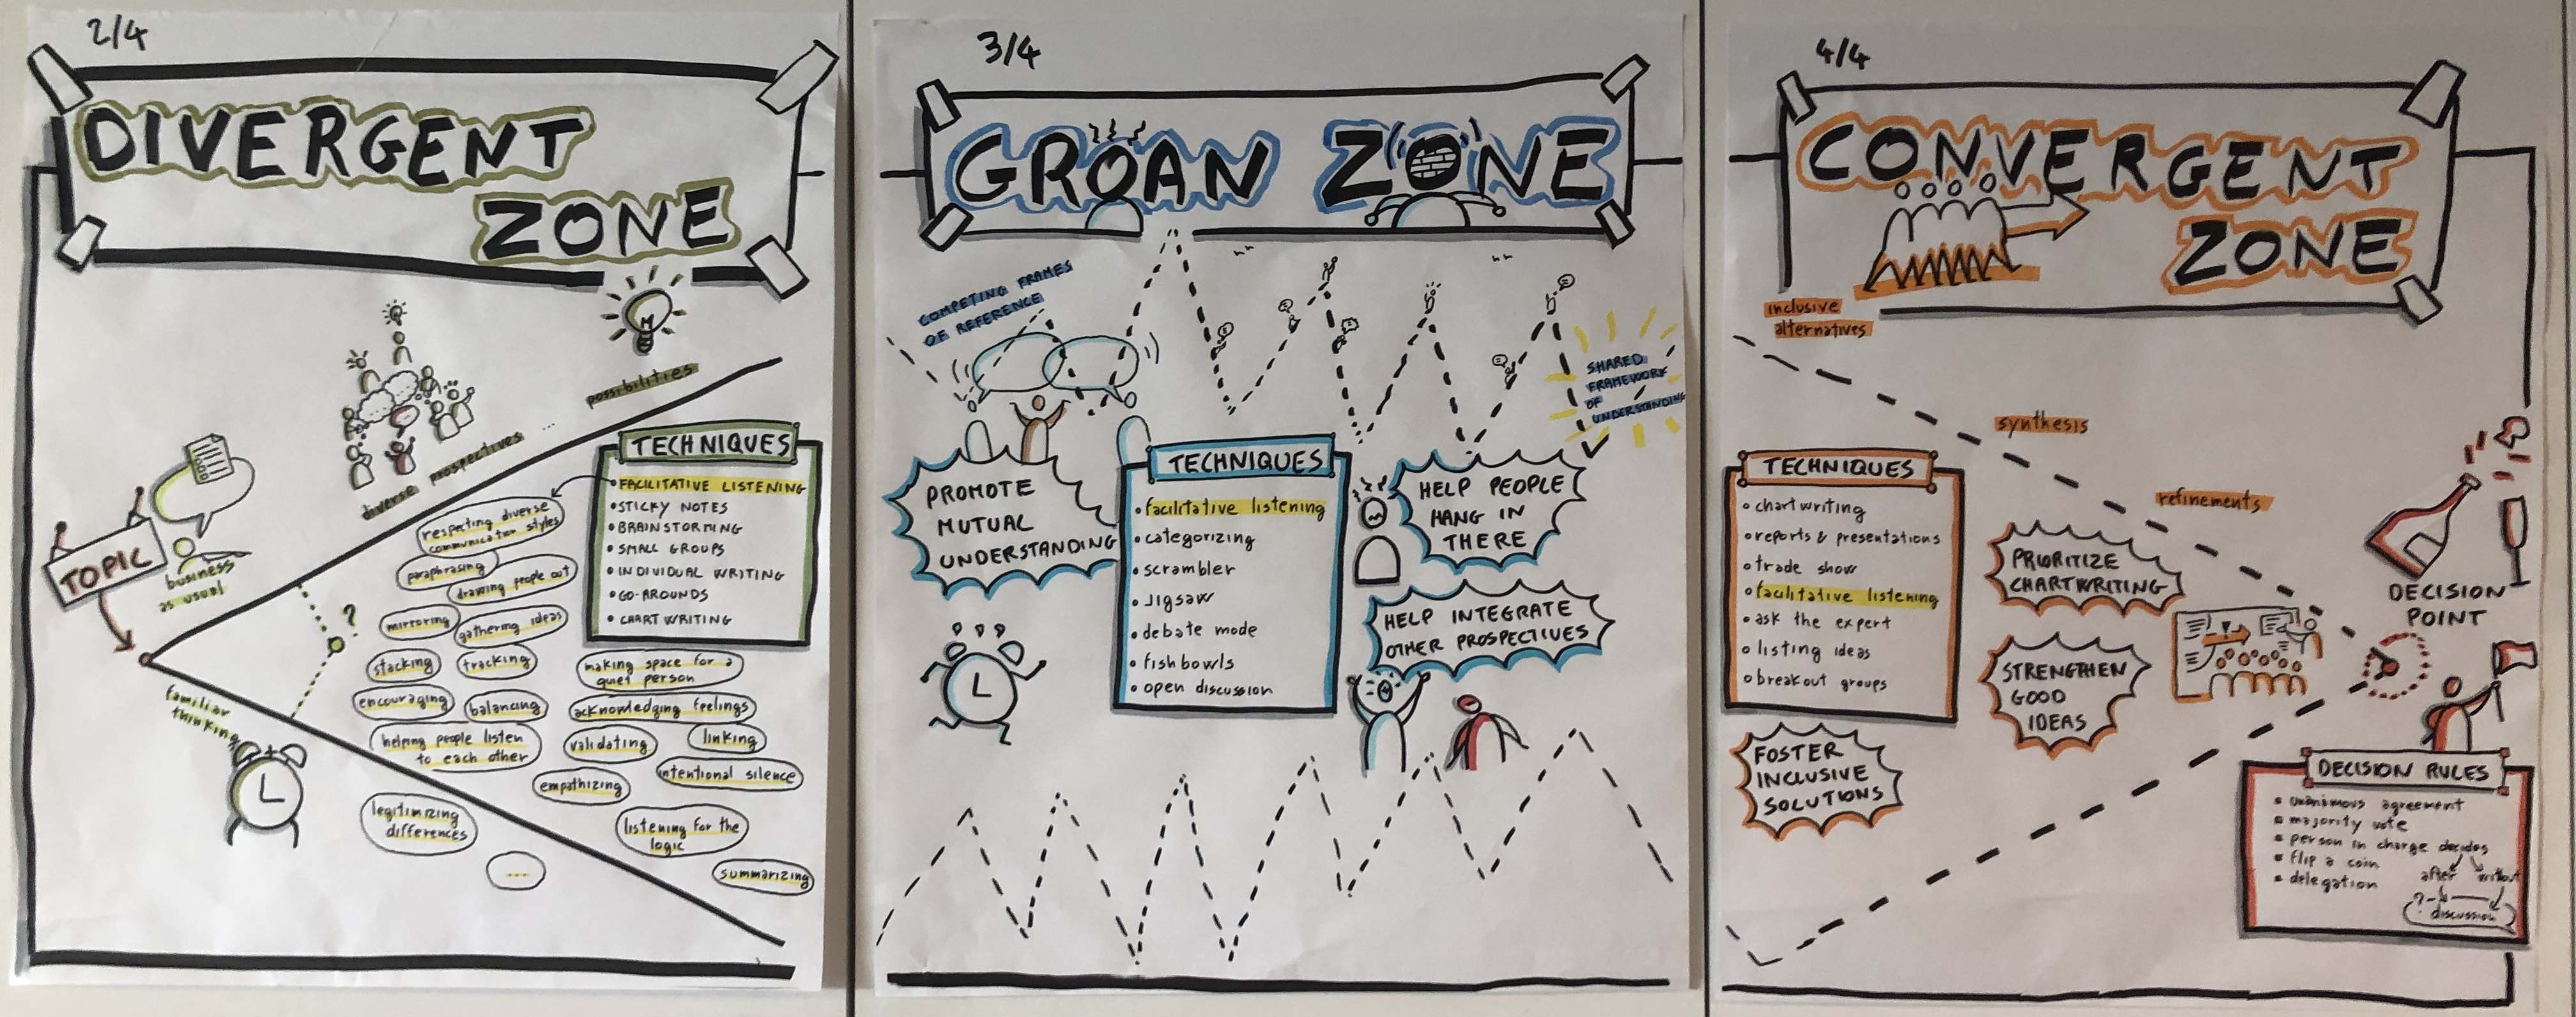 2/4
DIVERGENT
ZONE
possibilities
diverse prospectives ...
TOPIC
business
as usual
?
familiar
thinking
TECHNIQUES
• FACILITATIVE LISTENING
• STICKY NOTES
• BRAINSTORMING
• SMALL GROUPS
• INDIVIDUAL WRITING
• GO-AROUNDS
• CHART WRITING
respecting diverse
communication styles
paraphrasing
drawing people out
mirroring
gathering ideas
stacking
tracking
making space for a
quiet person
encouraging
balancing
acknowledging feelings
helping people listen
to each other
validating
linking
intentional silence
empathizing
legitimizing
differences
listening for the
logic
...
summarizing
3/4
GROAN ZONE
COMPETING FRAMES
OF REFERENCE
SHARED
FRAMEWORK
OF
UNDERSTANDING
PROMOTE
MUTUAL
UNDERSTANDING
TECHNIQUES
• facilitative listening
• categorizing
• scrambler
• Jigsaw
• debate mode
• fishbowls
• open discussion
HELP PEOPLE
HANG IN
THERE
HELP INTEGRATE
OTHER PROSPECTIVES
4/4
CONVERGENT
ZONE
inclusive
alternatives
synthesis
refinements
TECHNIQUES
• chartwriting
• reports & presentations
• trade show
• facilitative listening
• ask the expert
• listing ideas
• breakout groups
PRIORITIZE
CHARTWRITING
STRENGTHEN
GOOD
IDEAS
FOSTER
INCLUSIVE
SOLUTIONS
DECISION
POINT
DECISION RULES
• unanimous agreement
• majority vote
• person in charge decides
• flip a coin
• delegation
after without
?
discussion